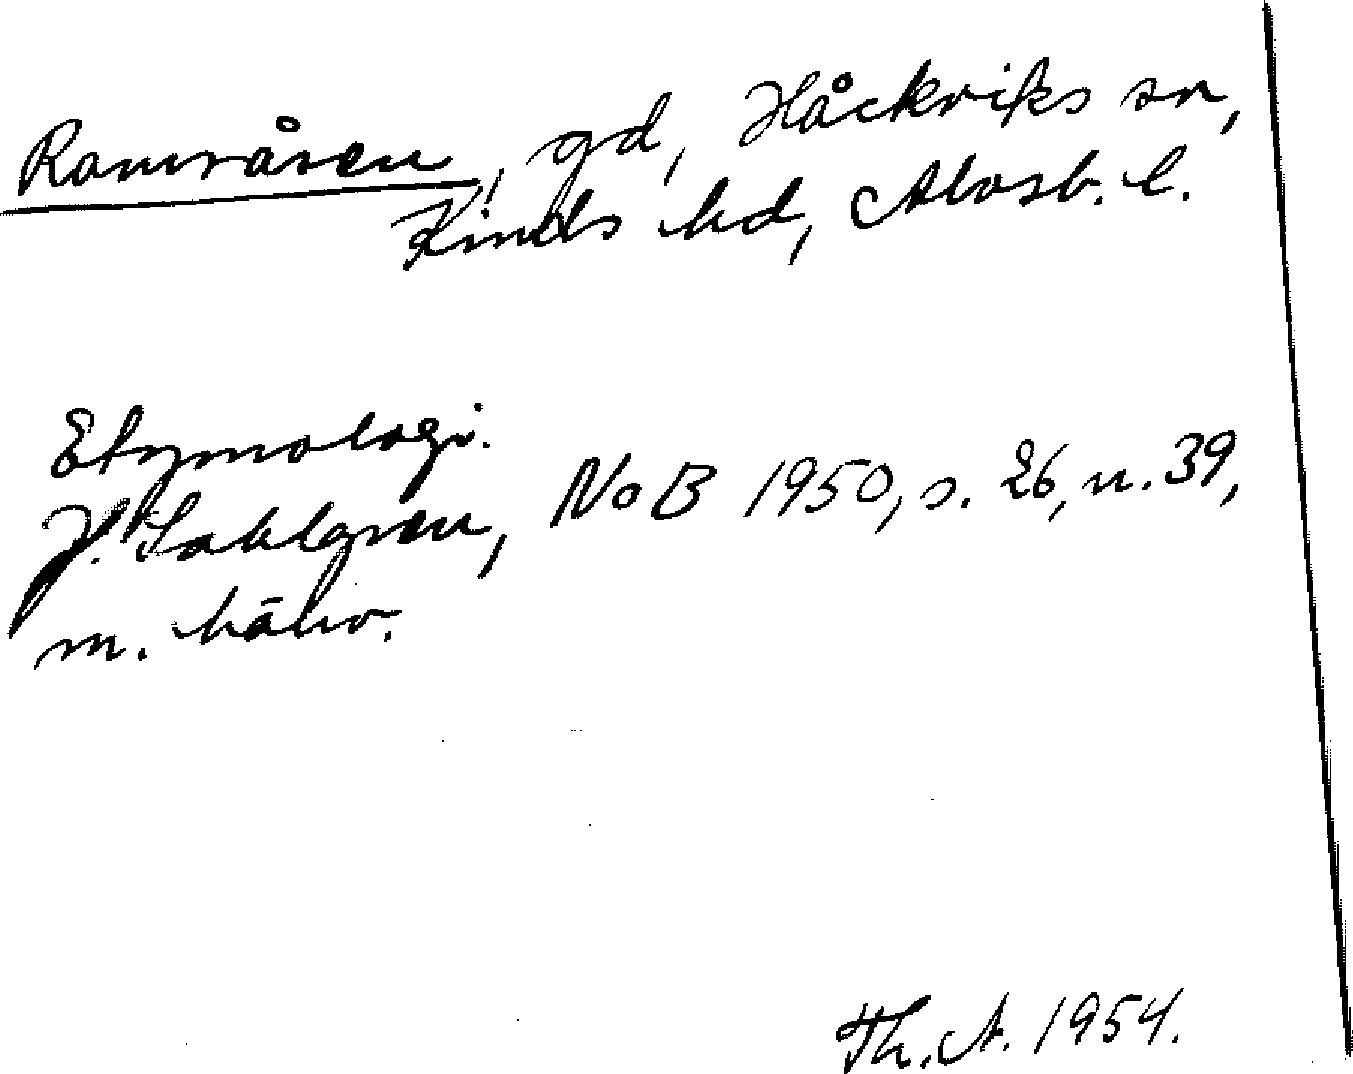 Ramråsen, gd, Håckviks sn,
Kinds hd, Älvsb. l.
Etymologi.
J. Sahlgren, NoB 1950, s. 26, n. 39,
m. hänv.
Th. A. 1954.